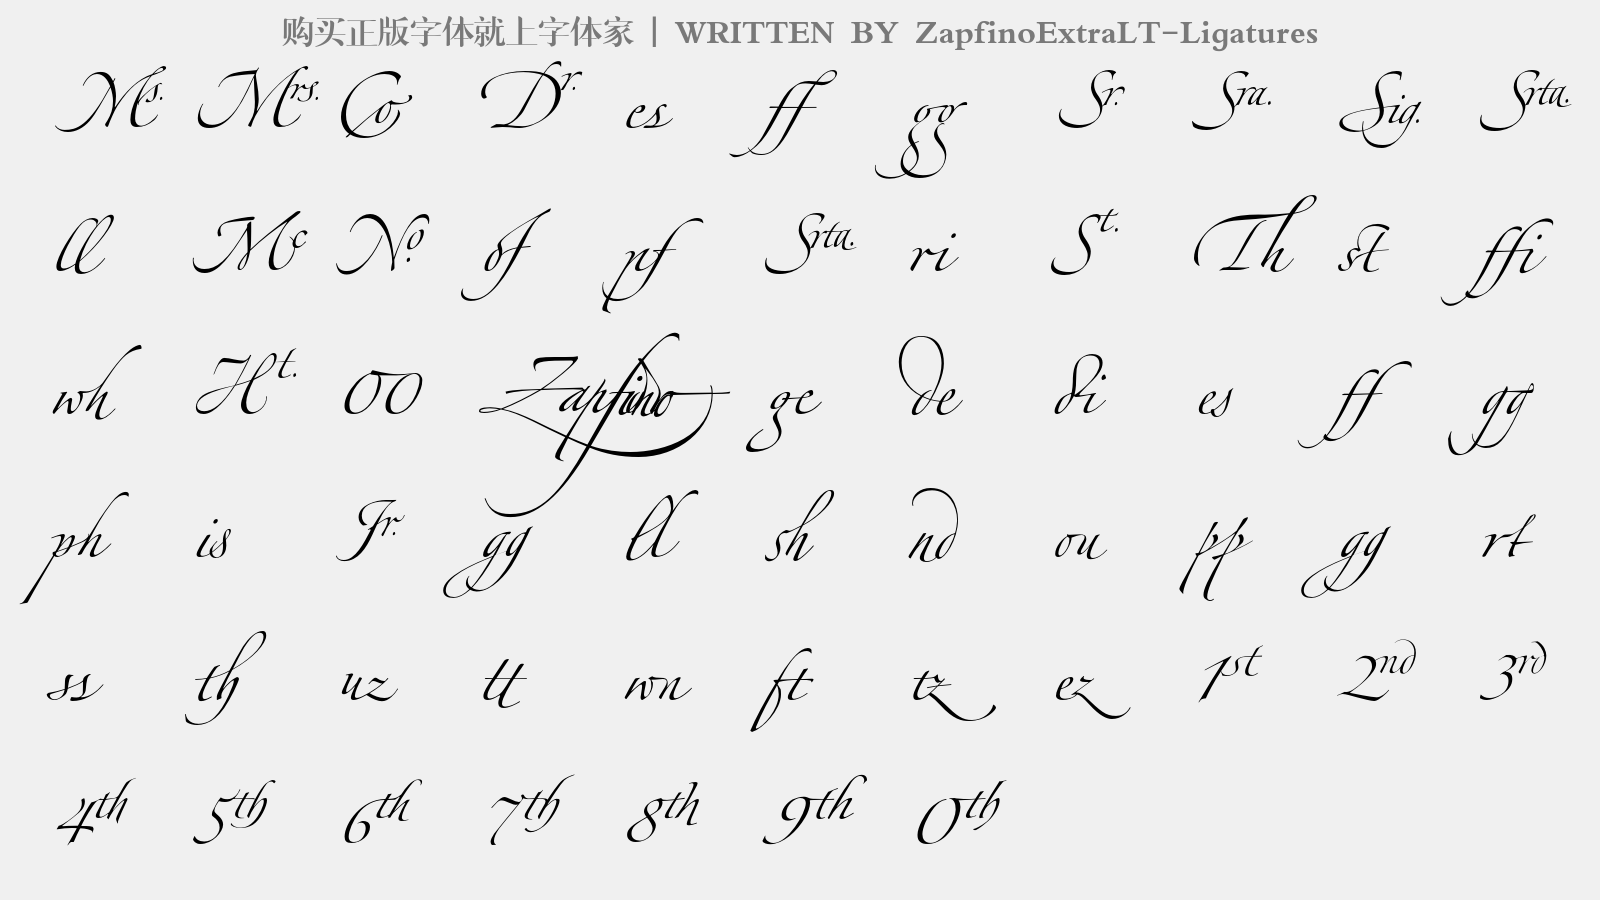 购买正版字体就上字体家 | WRITTEN BY ZapfinoExtraLT-Ligatures
Ms. Mrs. Co Dr. es ff gg Sr. Sra. Sig. Srta.
ll Mc No. of pf Srta. ri St. Th st ffi
wh Ht. OO Zapfino ge de di es ff gg
ph is Jr. gg ll sh nd ou pp gg rt
ss th uz tt wn ft tz ez 1st 2nd 3rd
4th 5th 6th 7th 8th 9th 0th